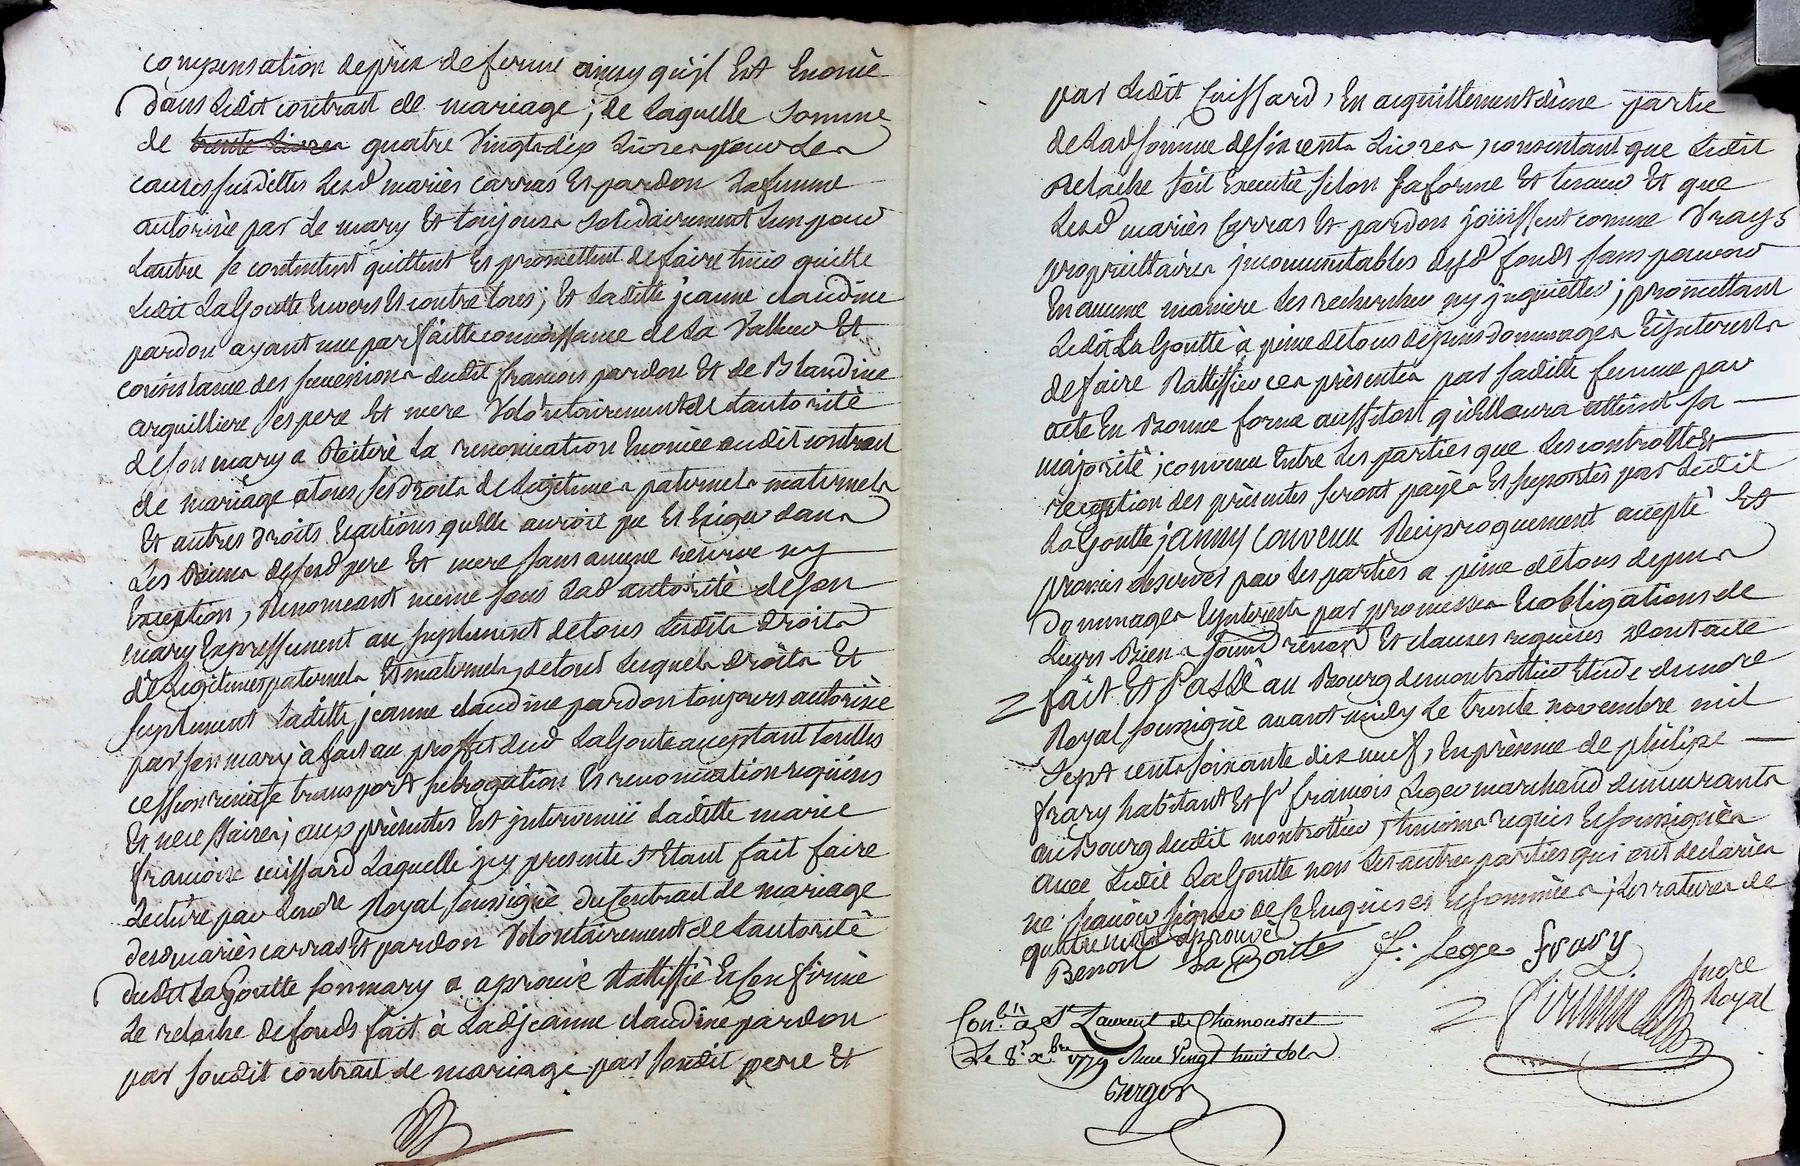 compensation de prix de ferme ainsy qu'jl Est Enoncé
dans Ledit contrait de mariage ; de Laquelle Somme
de trente Livres quatre Vingt dix Livres pour Les
causes susdittes Lesd mariés carras Et pardon La femme
autorisée par Le mary Et toujours Solidairement L'un pour
Lautre Se contentent quittent Et promettent de faire tenir quitte
Ledit LaGoutte Envers Et contre tous ; Et Laditte jeanne claudine
pardon ayant une parfaitte connoissance de La Valleur Et
consistance des successions dudit francois pardon Et de Blandine
arquilliere Ses pere Et mere Volontairement de Lautorité
de son mary a Reiteré La renonciation Enoncée audit contrait
de mariage a tous Ses Droits de Legitimes paternels maternels
Et autres Droits Eactions quelle auroit pu Et Exiger dans
Les Biens desesd pere Et mere Sans aucune reserve ny
Exception, Renonceant meme Sous Lad autorité de son
mary Expressement au Suplement de tous Lesdits Droits
de Legitimes paternels Et maternels, de tous Lesquels droits Et
Suplement Laditte jeanne claudine pardon toujours autorisée
par Son mary à fait au proffit dud LaGoute acceptant touttes
cession remise transport subrogation Et renonciation requises
Et necessaires ; aux présentes Est jntervenüe Laditte marie
francoise cuissard Laquelle jcy presente S'Etant fait faire
Lecture par Le nore Royal soussigné Du Contrait de mariage
desd mariés carras Et pardon Volontairement de Lautorité
Dudit LaGoutte Son mary a aprouvé Rattiffié Et Confirmé
Le relache de fonds fait à Lad jeanne claudine pardon
par Soudit contrait de mariage par Soudit pere Et
par Ledit Cuissard, En acquittement d'une partie
de Lad somme de six cents Livres, consentant que Ledit
Relache soit Executé selon sa forme Et teneur Et que
Lesd mariés Carras Et pardon joüissent comme Vrays
propriettaires jncommutables desd fonds sans pouvoir
En aucune maniere Les rechercher ny jnquietter ; promettant
Ledit LaGoutte à peine de tous dépens Dommages Et Interests
de faire Rattiffier ces présentes par Saditte femme par
acte En Bonne forme aussitost qu'Elle aura atteint sa
majorité ; convenu Entre Les parties que Les controlle Et
reception des présentes seront payés Et suportés par Ledit
LaGoutte jainsy convenu Reciproquement accepté Et
promis observer par Les parties a peine de tous depens
Dommages Et Interests par promesses Et obligations de
Leurs Biens Soumd renond Et clauses requises Dont acte
fait Et Passé au Bourg de montrottier Etude du nore
Royal soussigné avant midy Le trente novembre mil
Sept cents soixante dix neuf, En présence de philipe
frary habitant Et Sr francois Leger marchand demeurants
au Bourg dudit montrottier, temoins requis Et soussignés
avec Ledit LaGoutte non Les autres parties qui ont declarés
ne scavoir signer de ce Enquises Et sommées ; Les ratures de
quatre mots aprouvé
Benoit La Goutte F. Leger frary
nore Royal
Con.lé a St Laurent de Chamousset
Le 8.e xbre 1779 Reçu Vingt huit sols
Berger